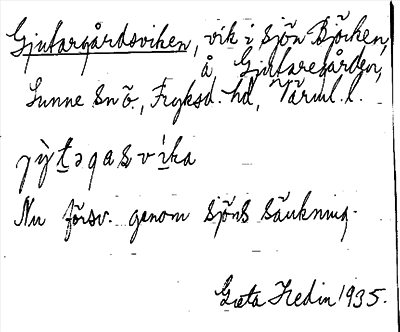 Gjutargårdsviken, vik i sjön Björken,
å Gjutaregården,
Sunne sn ö., Fryksd. hd, Värml. l.
Nu försv. genom sjöns sänkning.
Greta Hedin 1935.